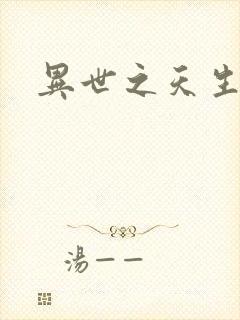 異世之天生
湯一一